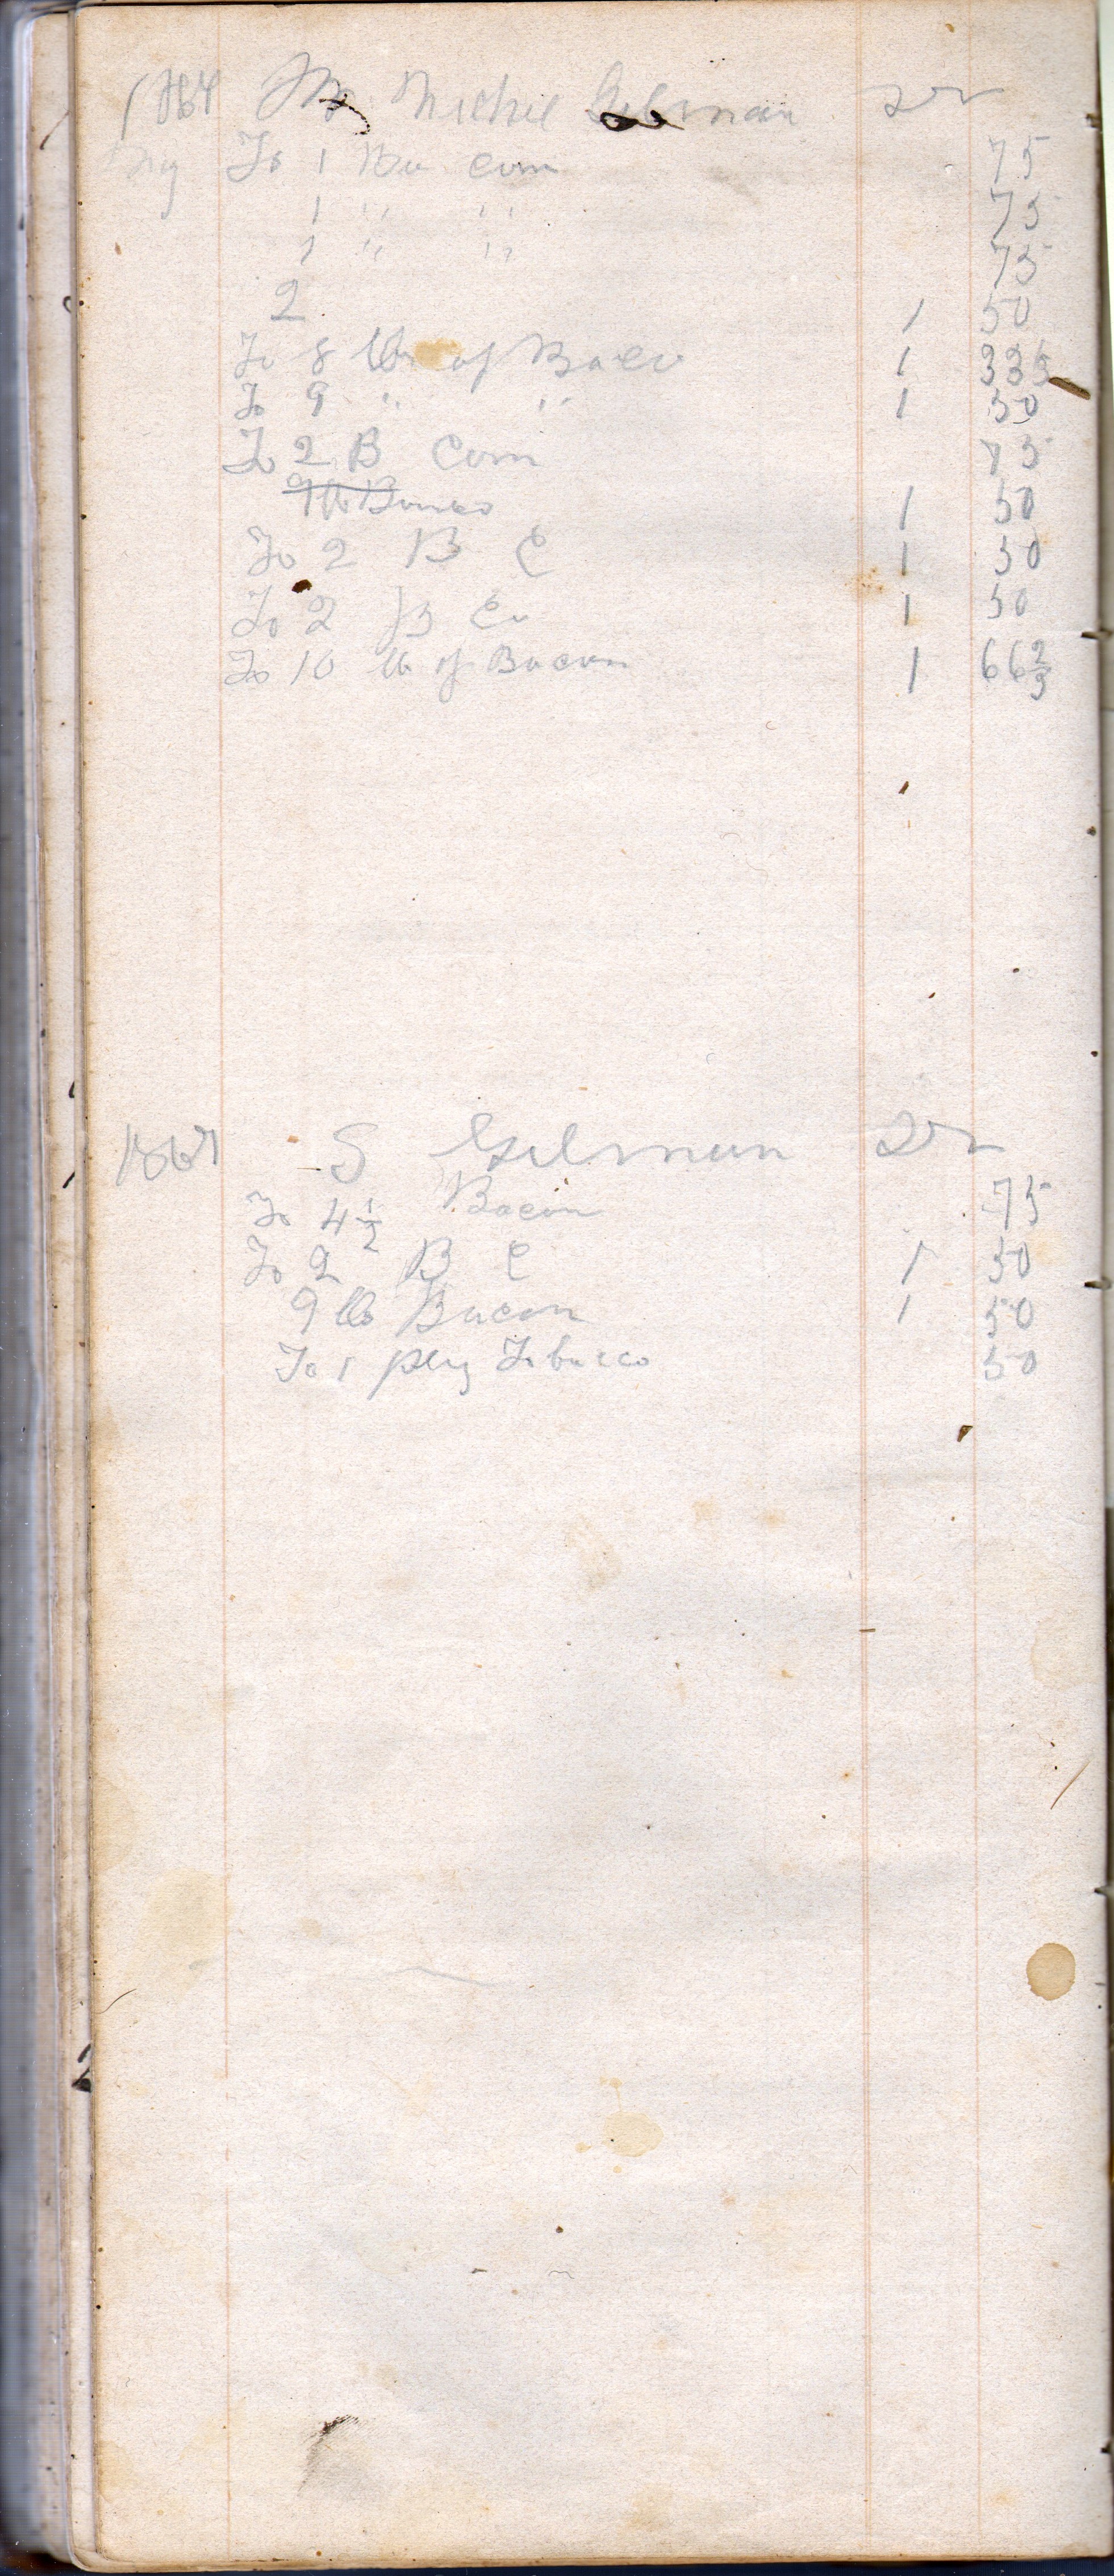 1867 Mr Michel Gilman Dr
To 1 Bu Corn 75
1 " " 75
1 " " 75
2 1 50
To 8 lbs of Baco 1 33⅓
To 9 " " 1 50
To 2 B Corn 75
9 lb Bacon 1 50
To 2 B C 1 50
To 2 B Co 1 50
To 10 lb of Bacon 1 66⅔
1867 S Gilman Dr
To 4½ Bacon 75
To 2 B C 1 50
9 lb Bacon 1 50
To 1 plug Tobacco 50